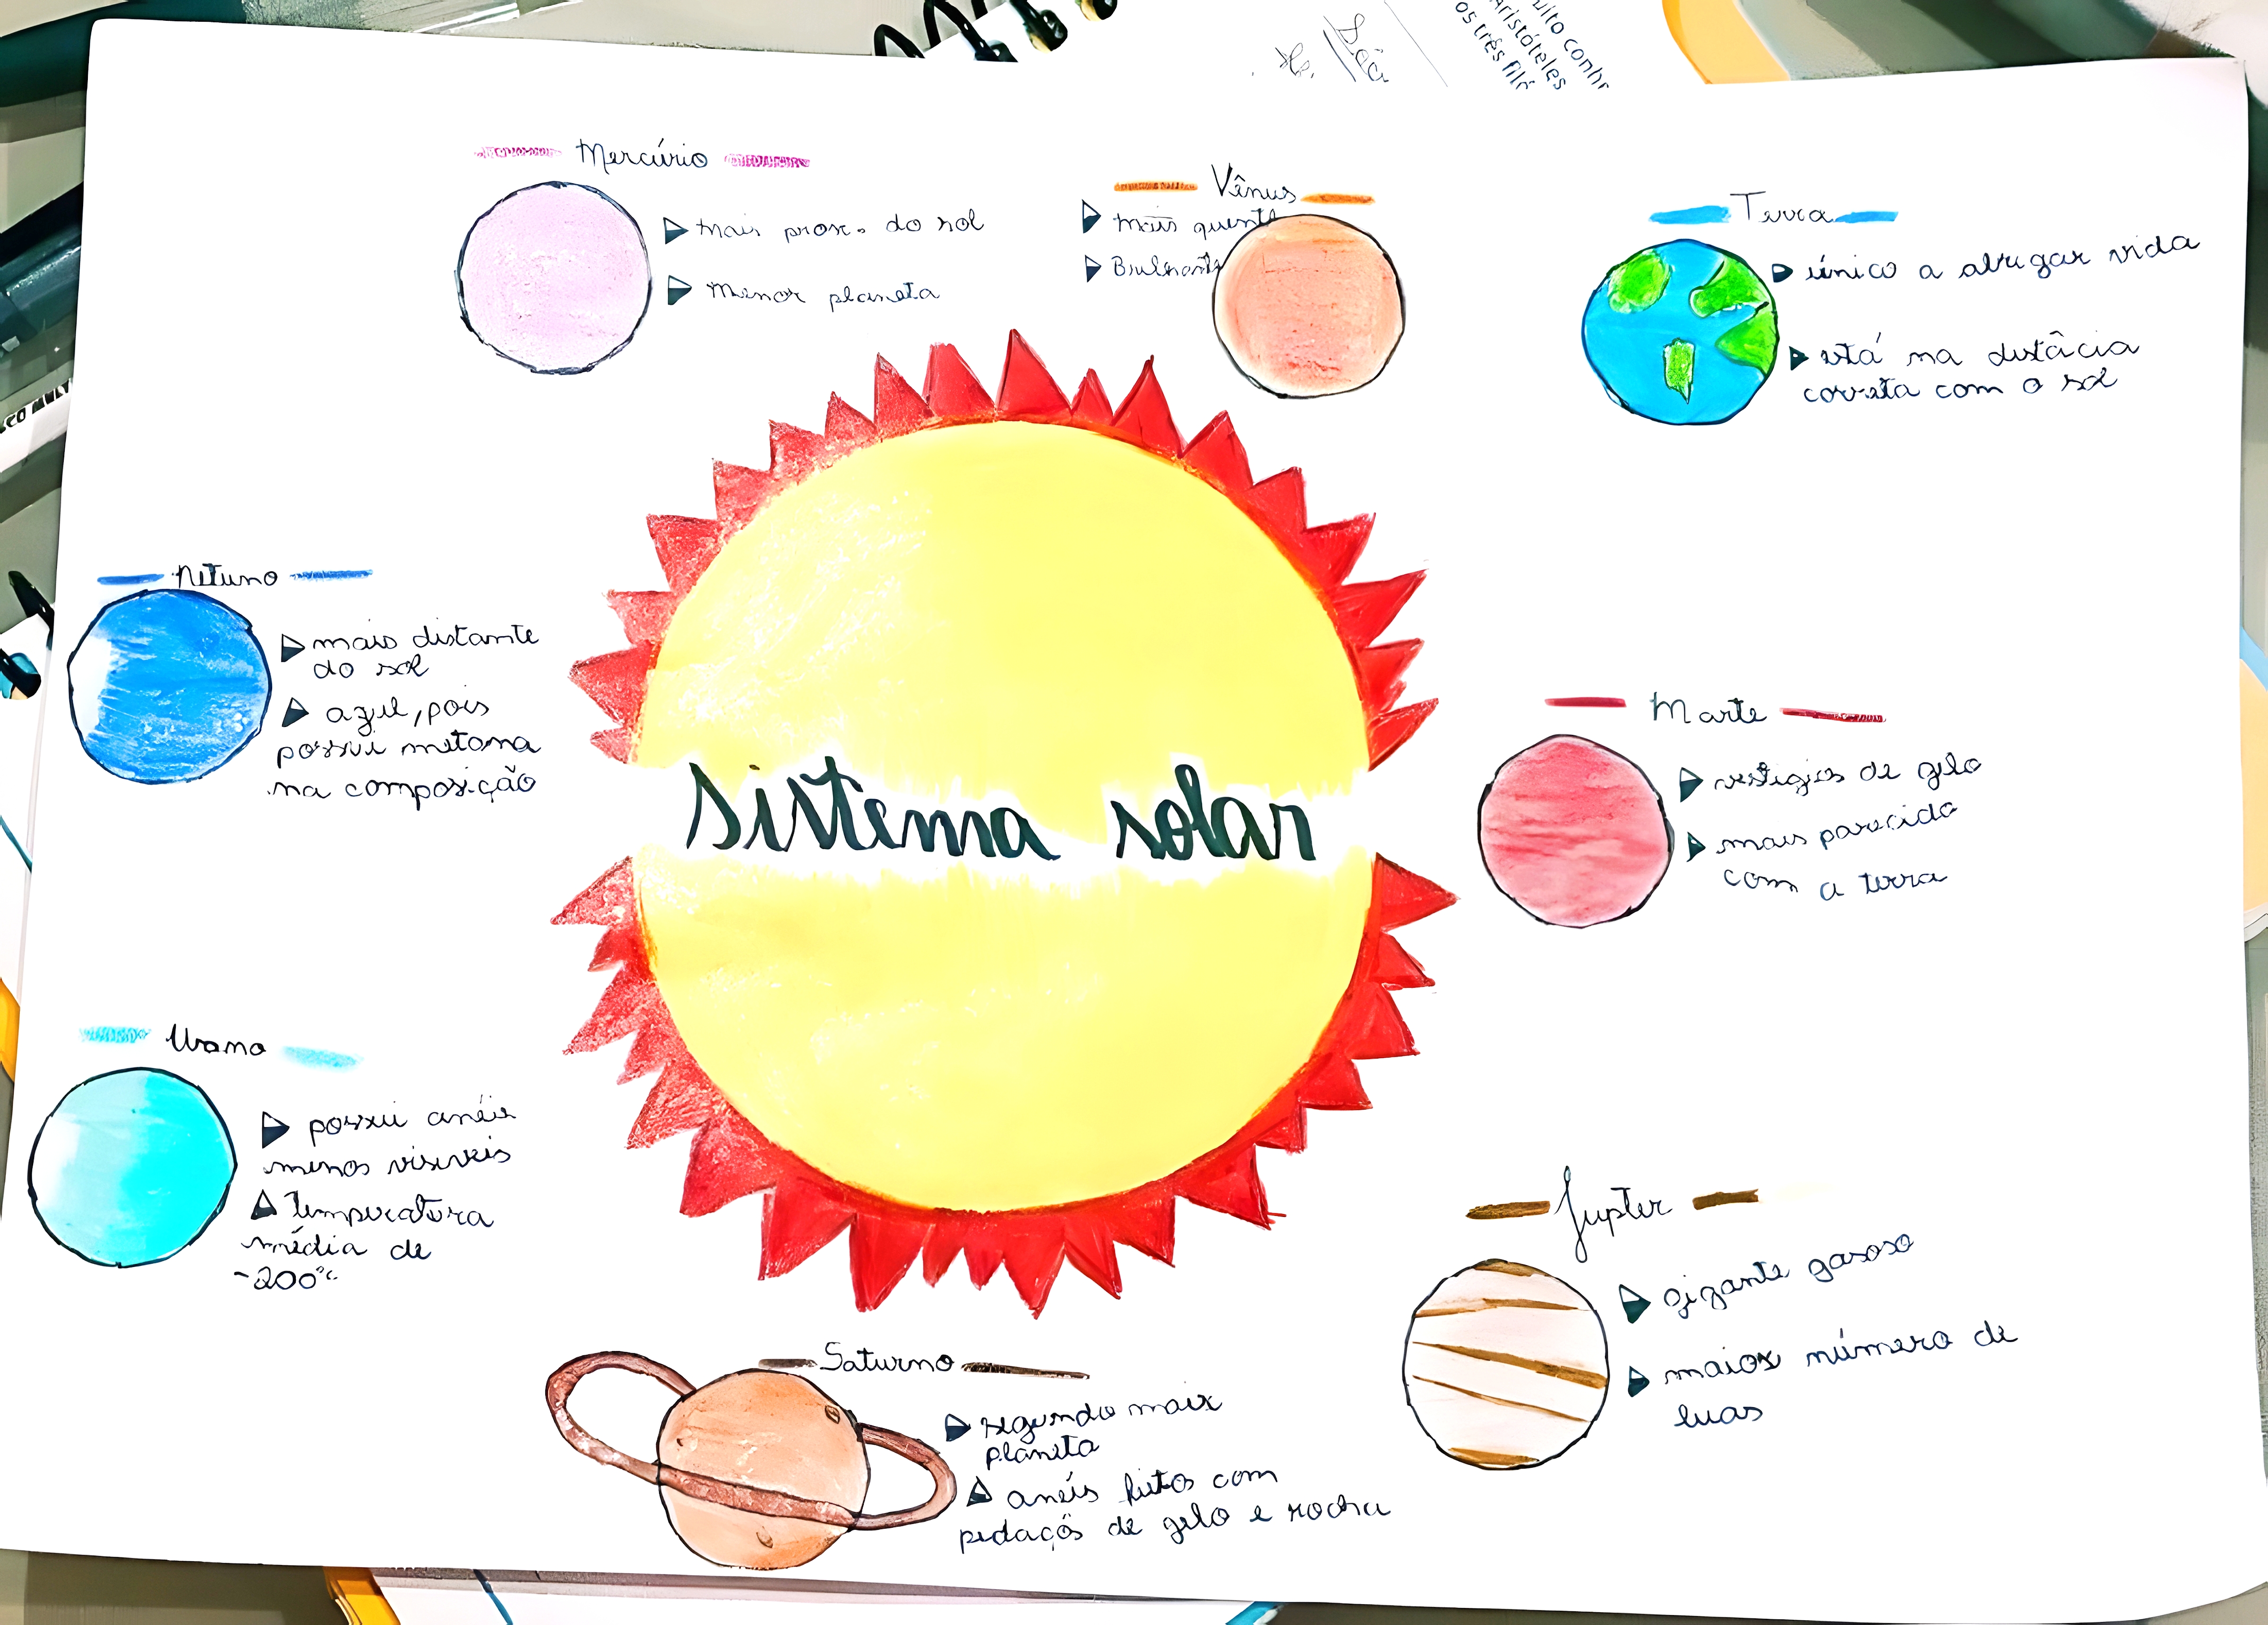 uito conhe
Aristóteles
os três filó
Mercúrio
mais prox. do sol
Menor planeta
Vênus
mais quente
Brilhante
Terra
único a abrigar vida
está na distâcia
correta com o sol
Netuno
mais distante
do sol
azul, pois
possui metano
na composição
sistema solar
Marte
vestígios de gelo
mais parecido
com a terra
Urano
possui anéis
menos visiveis
temperatura
média de
-200°C
Jupter
gigante gasoso
maior número de
luas
Saturno
segundo maior
planeta
anéis feitos com
pedaços de gelo e rocha